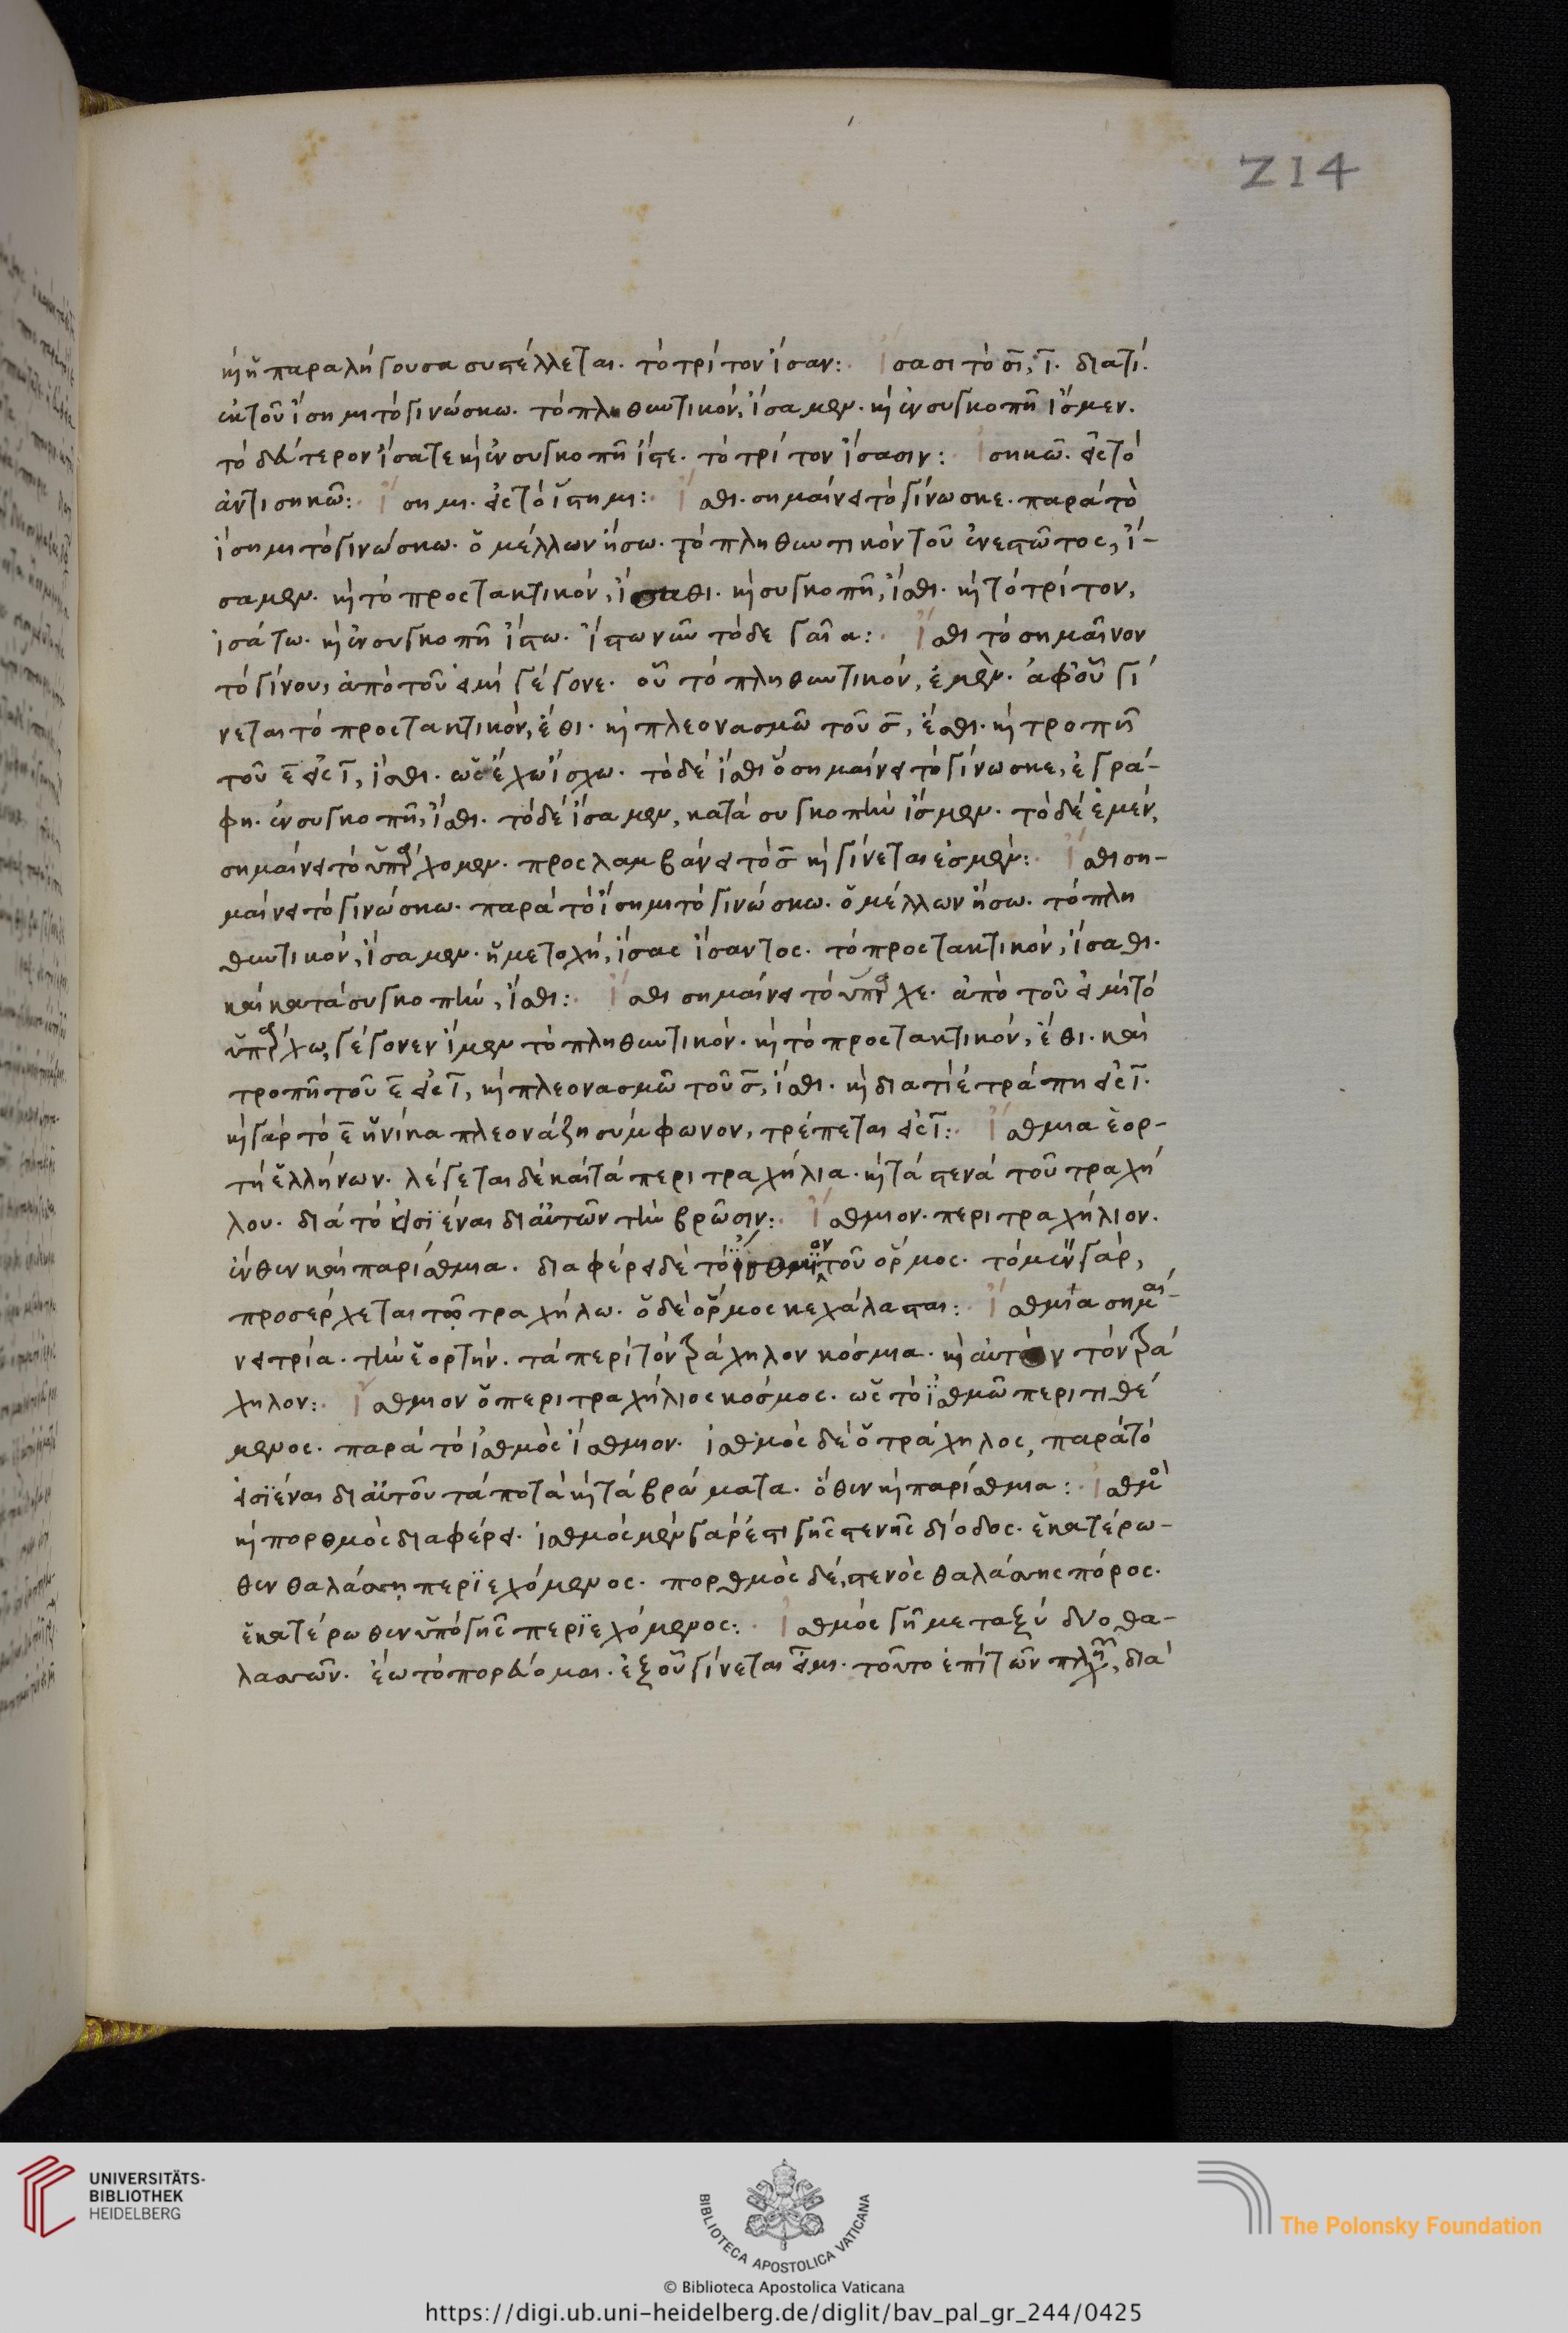 214
καὶ ἡ παραλήγουσα συστέλλεται. τὸ τρίτον ἴσαν: Ἴσασι τὸ σῑ, ῑ. διατί.
ἐκ τοῦ ἴσημι τὸ γινώσκω. τὸ πληθυντικόν, ἴσαμεν. καὶ ἐν συγκοπῇ ἴσμεν.
τὸ δεύτερον ἴσατε καὶ ἐν συγκοπῇ ἴστε. τὸ τρίτον ἴσασιν: Ἰσηκῶ. εἰς τὸ
ἀντισηκῶ: Ἴσημι. εἰς τὸ ἵστημι: Ἴσθι. σημαίνει τὸ γίνωσκε. παρὰ τὸ
ἴσημι τὸ γινώσκω. ὁ μέλλων ἤσω. τὸ πληθυντικὸν τοῦ ἐνεστῶτος, ἴ-
σαμεν. καὶ τὸ προστακτικόν, ἴσαθι. καὶ συγκοπῇ, ἴσθι. καὶ τὸ τρίτον,
ἰσάτω. καὶ ἐν συγκοπῇ ἴστω. ἴστω νῦν τόδε γαῖα: Ἴσθι τὸ σημαῖνον
τὸ γίνου, ἀπὸ τοῦ εἰμὶ γέγονε. οὗ τὸ πληθυντικόν, ἐμὲν. ἀφ' οὗ γί
νεται τὸ προστακτικόν, ἔθι. καὶ πλεονασμῷ τοῦ σ̄, ἔσθι. καὶ τροπῇ
τοῦ ε̄ εἰς ῑ, ἴσθι. ὡς ἔχω ἴσχω. τὸ δὲ ἴσθι ὃ σημαίνει τὸ γίνωσκε, ἐγρά-
φη. ἐν συγκοπῇ, ἴσθι. τὸ δὲ ἴσαμεν, κατὰ συγκοπὴν ἴσμεν. τὸ δὲ ἐμέν,
σημαίνει τὸ ὑπάρχομεν. προσλαμβάνει τὸ σ̄ καὶ γίνεται ἐσμέν: Ἴσθι ση-
μαίνει τὸ γινώσκω. παρὰ τὸ ἴσημι τὸ γινώσκω. ὁ μέλλων ἤσω. τὸ πλη
θυντικόν, ἴσαμεν. ἡ μετοχή, ἴσας ἴσαντος. τὸ προστακτικόν, ἴσαθι.
καὶ κατὰ συγκοπὴν, ἴσθι: Ἴσθι σημαίνει τὸ ὕπαρχε. ἀπὸ τοῦ εἰμὶ τὸ
ὑπάρχω, γέγονεν ἴμεν τὸ πληθυντικόν. καὶ τὸ προστακτικόν, ἔθι. καὶ
τροπῇ τοῦ ε̄ εἰς ῑ, καὶ πλεονασμῷ τοῦ σ̄, ἴσθι. καὶ διατί ἐτράπη εἰς ῑ.
καὶ γὰρ τὸ ε̄ ἡνίκα πλεονάζῃ σύμφωνον, τρέπεται εἰς ῑ: Ἴσθμια ἑορ-
τὴ ἑλλήνων. λέγεται δὲ καὶ τὰ περιτραχήλια. καὶ τὰ στενὰ τοῦ τραχή
λου. διὰ τὸ εἰσϊέναι δι' αὐτῶν τὴν βρῶσιν: Ἴσθμιον. περιτραχήλιον.
ἔνθεν καὶ παρίσθμια. διαφέρει δὲ τὸ ἴσθμιον τοῦ ὅρμος. τὸ μὲν γὰρ,
προσέρχεται τῷ τραχήλῳ. ὁ δὲ ὅρμος κεχάλασται: Ἴσθμια σημαί-
νει τρία. τὴν ἑορτήν. τὰ περὶ τὸν τράχηλον κόσμια. καὶ αὐτὸν τὸν τρά
χηλον: Ἴσθμιον ὁ περιτραχήλιος κόσμος. ὡς τὸ ἰσθμῷ περιτιθέ
μενος. παρὰ τὸ ἰσθμὸς ἴσθμιον. ἰσθμὸς δὲ ὁ τράχηλος, παρὰ τὸ
εἰσϊέναι δι' αὐτοῦ τὰ ποτὰ καὶ τὰ βρώματα. ὅθεν καὶ παρίσθμια: Ἰσθμὸς
καὶ πορθμὸς διαφέρει. ἰσθμὸς μὲν γὰρ ἐστὶ γῆς στενῆς δίοδος. ἑκατέρω-
θεν θαλάσσῃ περϊεχόμενος. πορθμὸς δέ, στενὸς θαλάσσης πόρος.
ἑκατέρωθεν ὑπὸ γῆς περϊεχόμενος: Ἰσθμὸς γῆ μεταξὺ δύο θα-
λασσῶν. ἔω τὸ πορεύομαι. ἐξ οὗ γίνεται εἶμι. τοῦτο ἐπὶ τῶν διὰ
UNIVERSITÄTS-
BIBLIOTHEK
HEIDELBERG
BIBLIOTECA APOSTOLICA VATICANA
The Polonsky Foundation
© Biblioteca Apostolica Vaticana
https://digi.ub.uni-heidelberg.de/diglit/bav_pal_gr_244/0425